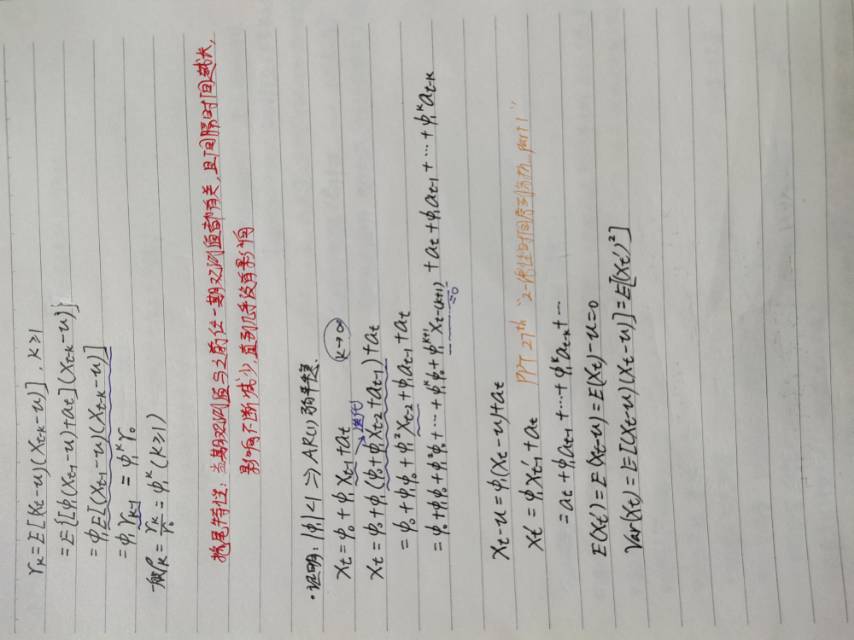 γₖ = E[(Xₜ-u)(Xₜ₋ₖ-u)], k≥1
= E{[φ₁(Xₜ₋₁-u)+aₜ](Xₜ₋ₖ-u)}
= φ₁E[(Xₜ₋₁-u)(Xₜ₋ₖ-u)]
= φ₁γₖ₋₁ = φ₁ᵏγ₀
故ρₖ = γₖ/γ₀ = φ₁ᵏ (k≥1)
拖尾特征：当期观测值与之前任一期观测值都有关，且间隔时间越大，
影响不断减少，直到几乎没有影响
·证明：|φ₁|<1 => AR(1)弱平稳.
Xₜ = φ₀+φ₁Xₜ₋₁+aₜ k→∞
迭代
Xₜ = φ₀+φ₁(φ₀+φ₁Xₜ₋₂+aₜ₋₁)+aₜ
= φ₀+φ₁φ₀+φ₁²Xₜ₋₂+φ₁aₜ₋₁+aₜ
= φ₀+φ₁φ₀+φ₁²φ₀+⋯+φ₁ᵏφ₀+φ₁ᵏ⁺¹Xₜ₋₍ₖ₊₁₎+aₜ+φ₁aₜ₋₁+⋯+φ₁ᵏaₜ₋ₖ
=0
Xₜ-u = φ₁(Xₜ-u)+aₜ
Xₜ' = φ₁Xₜ₋₁'+aₜ PPT 27th "2-线性时间序列分析_part1"
= aₜ+φ₁aₜ₋₁+⋯+φ₁ᵏaₜ₋ₖ+⋯
E(Xₜ') = E(Xₜ-u) = E(Xₜ)-u=0
Var(Xₜ) = E[(Xₜ-u)(Xₜ-u)] = E[(Xₜ')²]